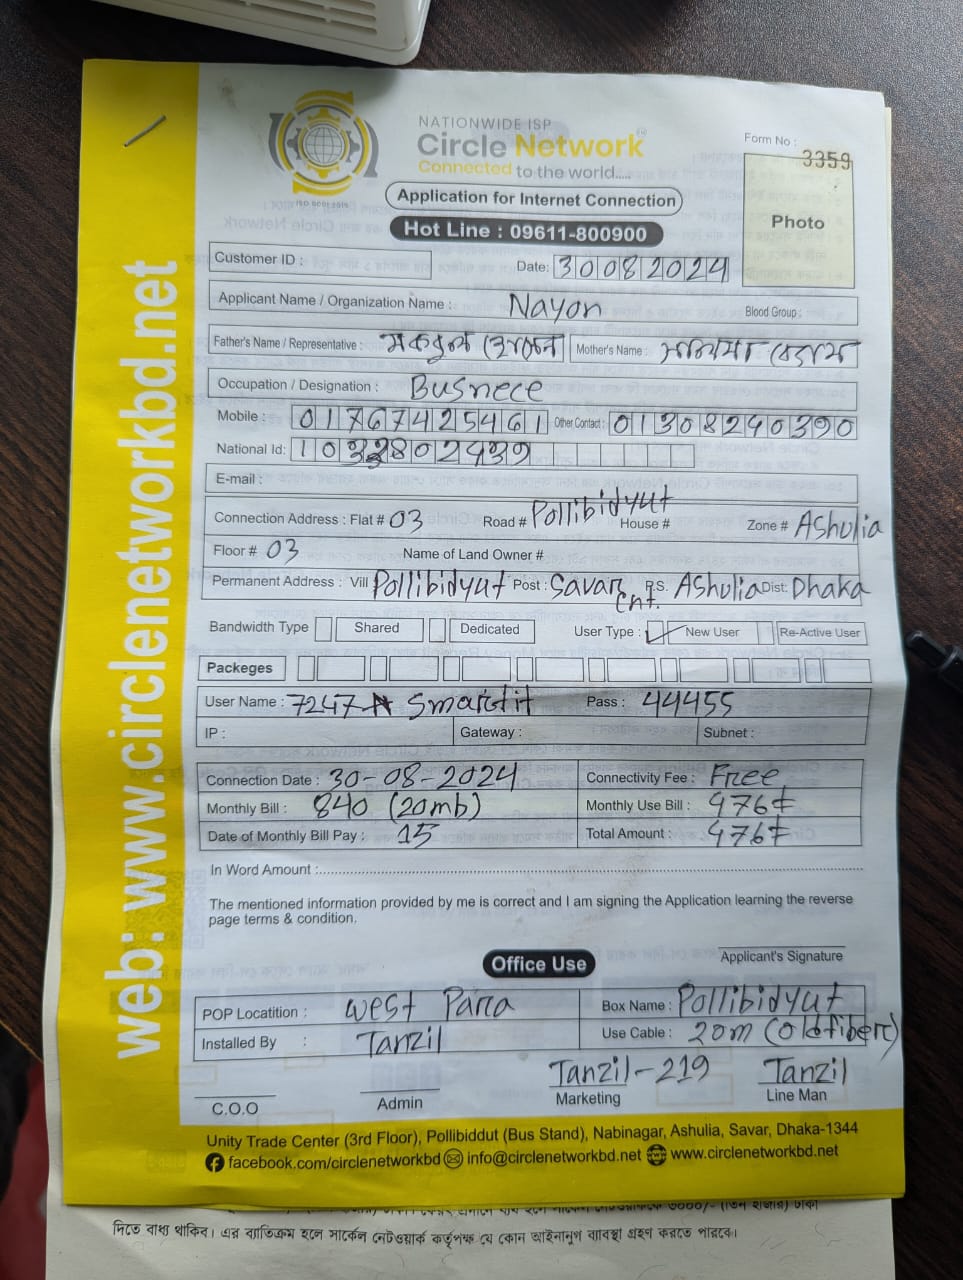 NATIONWIDE ISP
Circle Network
Connected to the world.....
ISO 9001:2015
Form No : 3359
Photo
Application for Internet Connection
Hot Line : 09611-800900
Customer ID :
Date: 30082024
Applicant Name / Organization Name : Nayon Blood Group :
Father's Name / Representative : মকবুল হোসেন Mother's Name : বেগম
Occupation / Designation : Busnece
Mobile : 01767425461 Other Contact : 01308240390
National Id:
E-mail :
Connection Address : Flat # 03 Road # Pollibidyut House # Zone # Ashulia
Floor # 03 Name of Land Owner #
Permanent Address : Vill Pollibidyut Post : Savar Cnt. P.S. Ashulia Dist: Dhaka
Bandwidth Type Shared Dedicated User Type : New User Re-Active User
Packeges
User Name : 7247 Smartit Pass : 44455
IP : Gateway : Subnet :
Connection Date : 30-08-2024 Connectivity Fee : Free
Monthly Bill : 840 (20mb) Monthly Use Bill : 976৳
Date of Monthly Bill Pay : 15 Total Amount : 976৳
In Word Amount :
The mentioned information provided by me is correct and I am signing the Application learning the reverse
page terms & condition.
Applicant's Signature
Office Use
POP Locatition : West Para Box Name : Pollibidyut
Installed By : Tanzil Use Cable : 20m (Oldfiber)
Tanzil-219 Tanzil
C.O.O Admin Marketing Line Man
Unity Trade Center (3rd Floor), Pollibiddut (Bus Stand), Nabinagar, Ashulia, Savar, Dhaka-1344
facebook.com/circlenetworkbd info@circlenetworkbd.net www.circlenetworkbd.net
web: www.circlenetworkbd.net
দিতে বাধ্য থাকিব। এর ব্যতিক্রম হলে সার্কেল নেটওয়ার্ক কর্তৃপক্ষ যে কোন আইনানুগ ব্যাবস্থা গ্রহণ করতে পারবে।